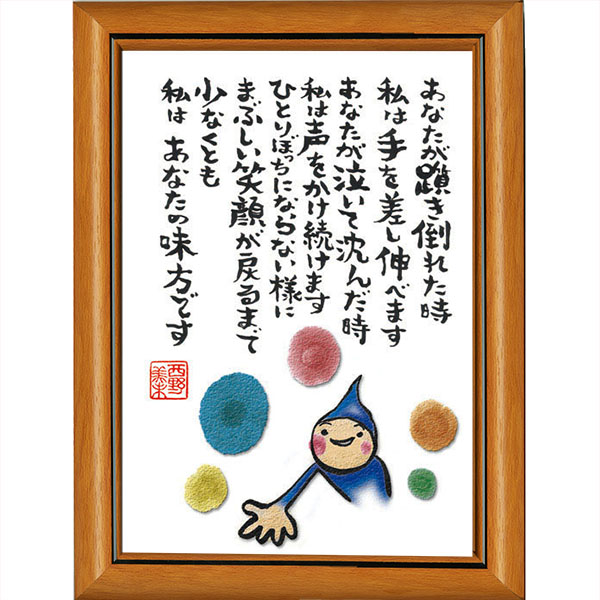 あなたが躓き倒れた時
私は手を差し伸べます
あなたが泣いて沈んだ時
私は声をかけ続けます
ひとりぼっちにならない様に
まぶしい笑顔が戻るまで
少なくとも
私は あなたの味方です
西野